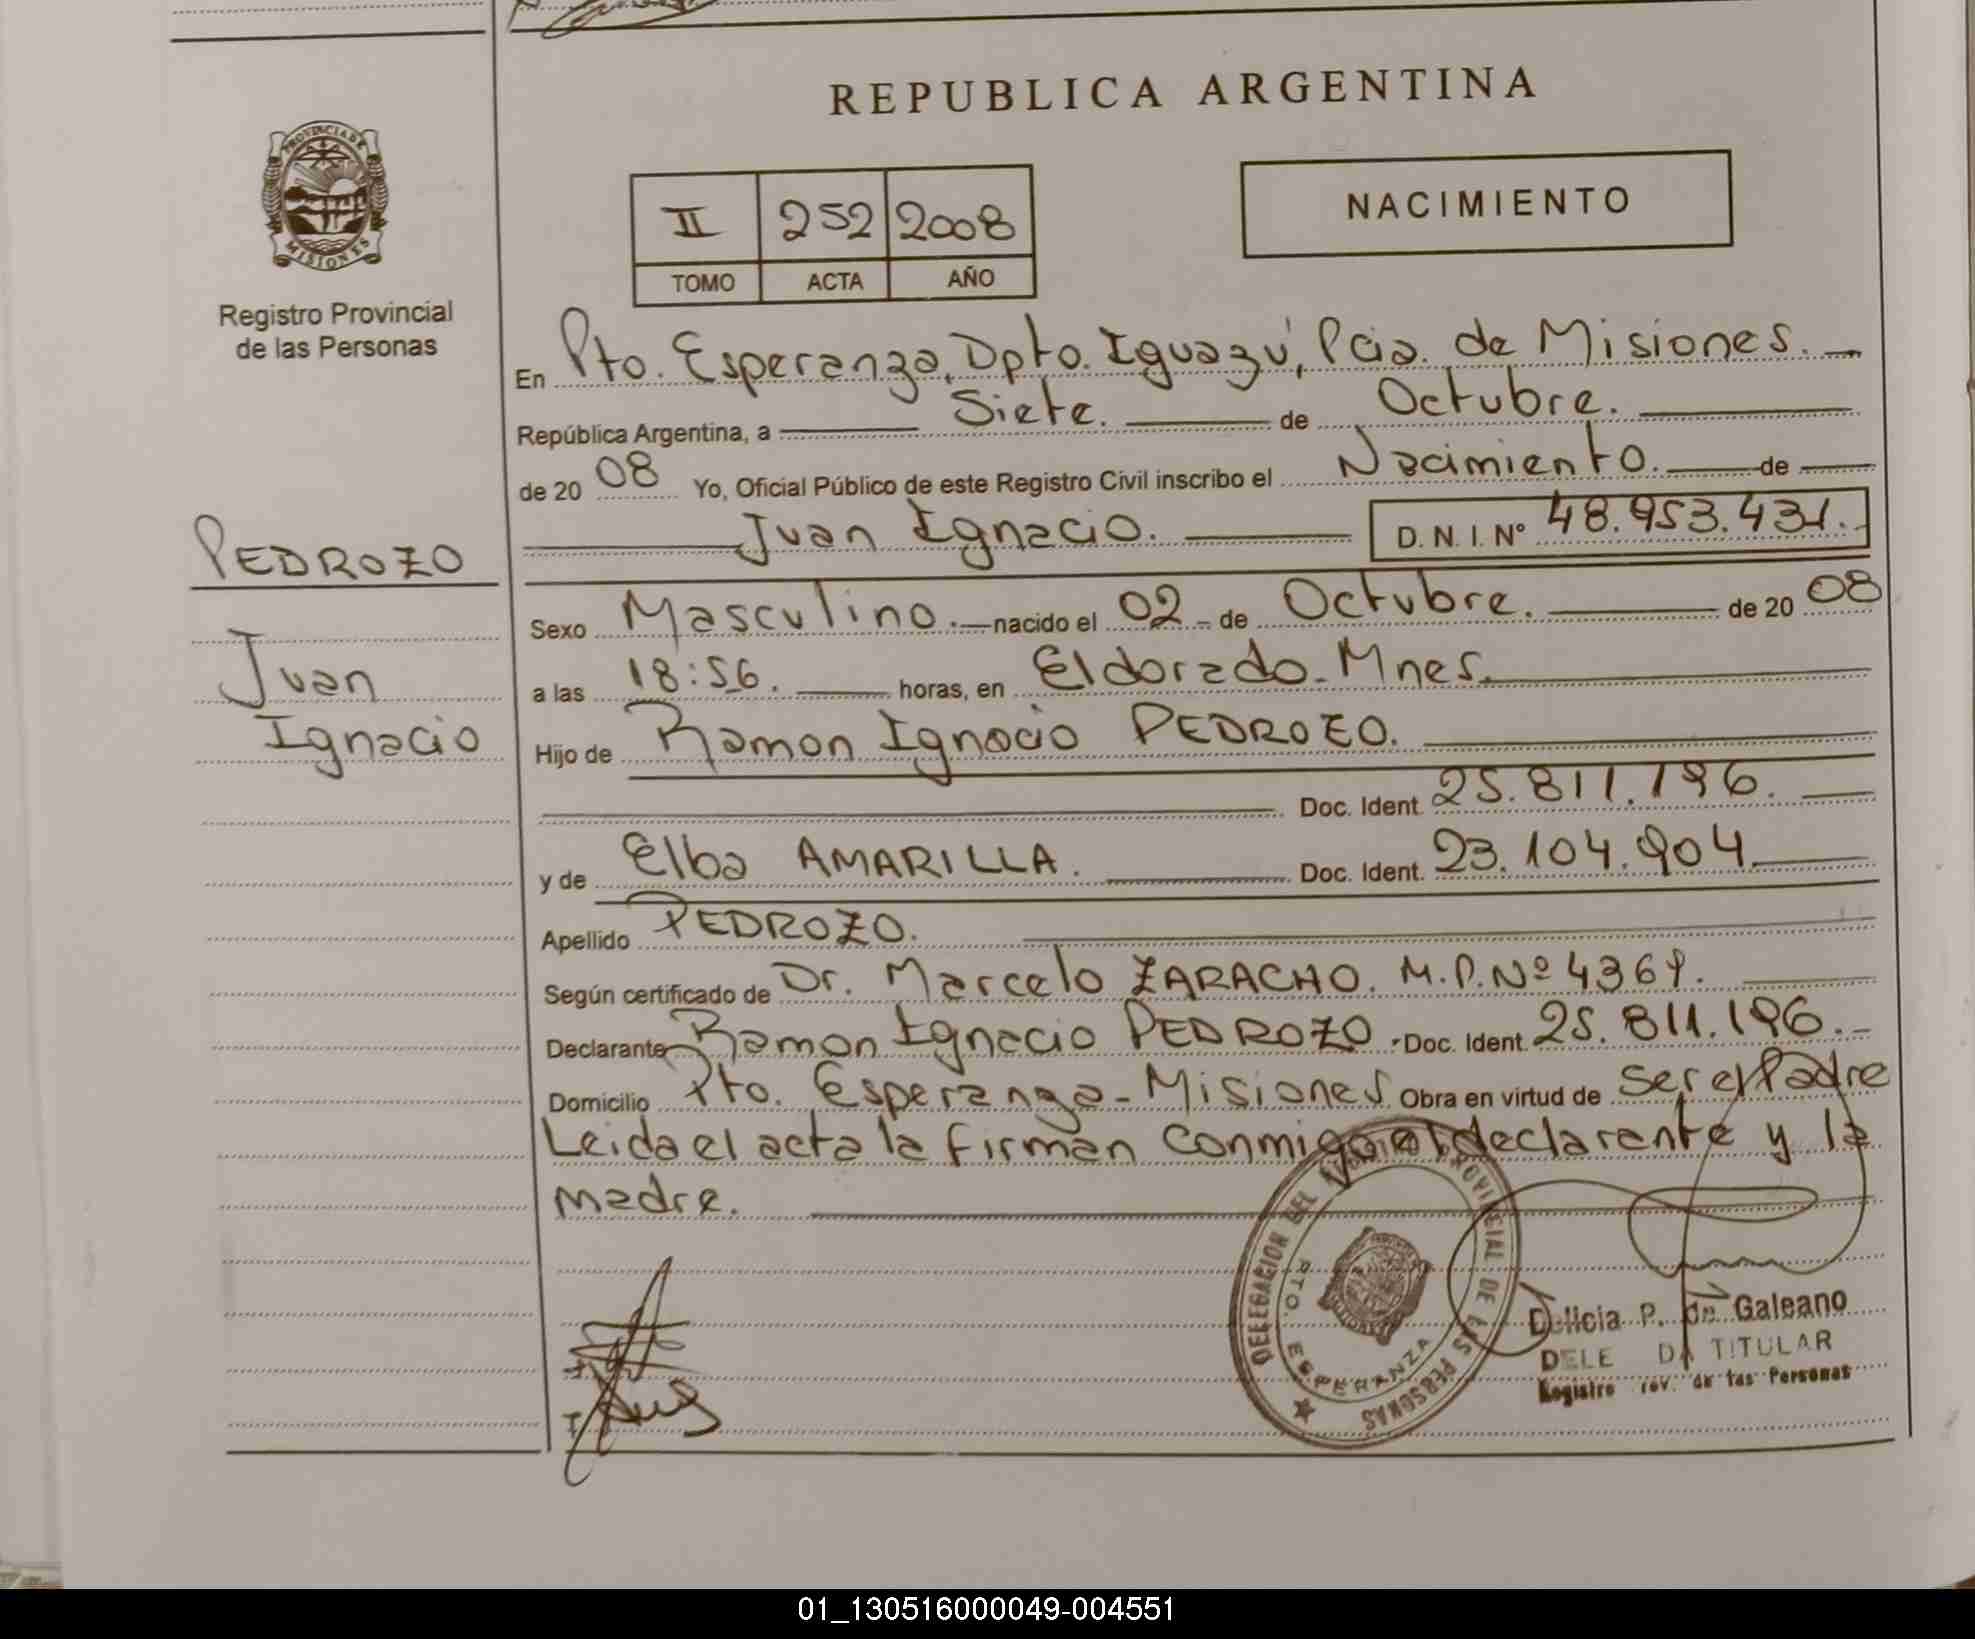 REPUBLICA ARGENTINA
PROVINCIA DE
MISIONES
Registro Provincial
de las Personas
II 252 2008
TOMO ACTA AÑO
NACIMIENTO
En Pto. Esperanza, Dpto. Iguazú, Pcia. de Misiones.
República Argentina, a Siete. de Octubre.
de 20 08 Yo, Oficial Público de este Registro Civil inscribo el Nacimiento. de
Juan Ignacio. D. N. I. Nº 48.953.431.
PEDROZO
Juan
Ignacio
Sexo Masculino. nacido el 02 de Octubre. de 20 08
a las 18:56. horas, en Eldorado - Mnes.
Hijo de Ramon Ignacio PEDROZO.
Doc. Ident. 25.811.196.
y de Elba AMARILLA. Doc. Ident. 23.104.904.
Apellido PEDROZO.
Según certificado de Dr. Marcelo ZARACHO. M.P. Nº 4369.
Declarante Ramon Ignacio PEDROZO. Doc. Ident. 25.811.196.
Domicilio Pto. Esperanza - Misiones. Obra en virtud de ser el Padre
Leida el acta la firman conmigo el declarante y la
madre.
DELEGACION DEL REGISTRO PROVINCIAL DE LAS PERSONAS
PTO. ESPERANZA
Delicia P. de Galeano
DELE DA TITULAR
Registro rov. de las Personas
01_130516000049-004551